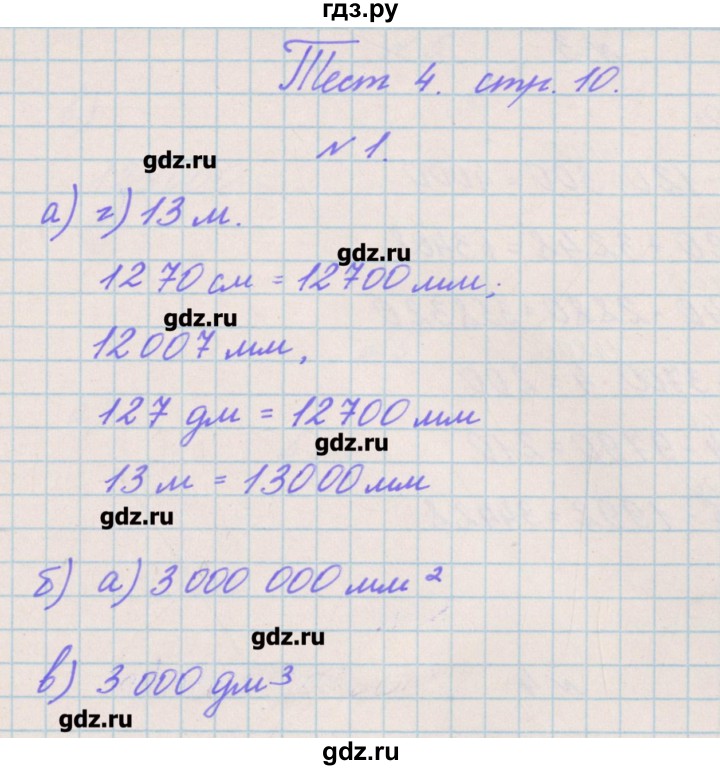 гдз.ру
Тест 4. стр. 10.
№ 1.
gdz.ru
а) г) 13 м.
gdz.ru
1270 см = 12700 мм;
gdz.ru
12007 мм,
127 дм = 12700 мм
gdz.ru
13 м = 13000 мм
gdz.ru
б) а) 3 000 000 мм²
gdz.ru
в) 3 000 дм³
gdz.ru
gdz.ru